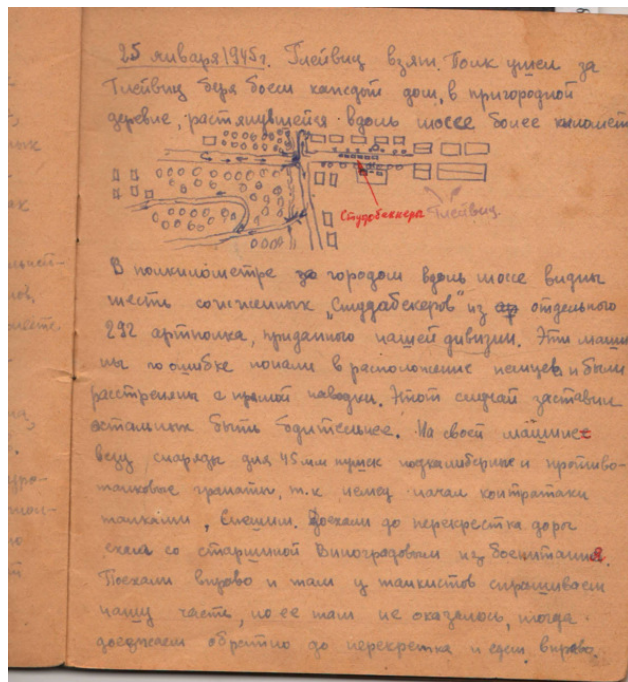 25 января 1945 г. Глейвиц взят. Полк ушел за
Глейвиц беря боем каждый дом, в пригородной
деревне, растянувшейся вдоль шоссе более километ
Студебеккера Глейвиц
В полкилометре за городом вдоль шоссе видны
шесть сожженных „Студабекеров" из отдельного
292 артполка, приданного нашей дивизии. Эти маши
ны по ошибке попали в расположение немцев и были
расстреляны с прямой наводки. Этот случай заставил
остальных быть бдительнее. На своей машине
везу снаряды для 45 мм пушек подкалиберные и противо-
танковые гранаты т.к немец начал контратаки
танками, Спешим. Доехали до перекрестка дорог
ехала со старшиной Виноградовым из боепитания.
Поехали вправо и там у танкистов спрашиваем
нашу часть, но ее там не оказалось, тогда
доезжаем обратно до перекретка и едем вправо.